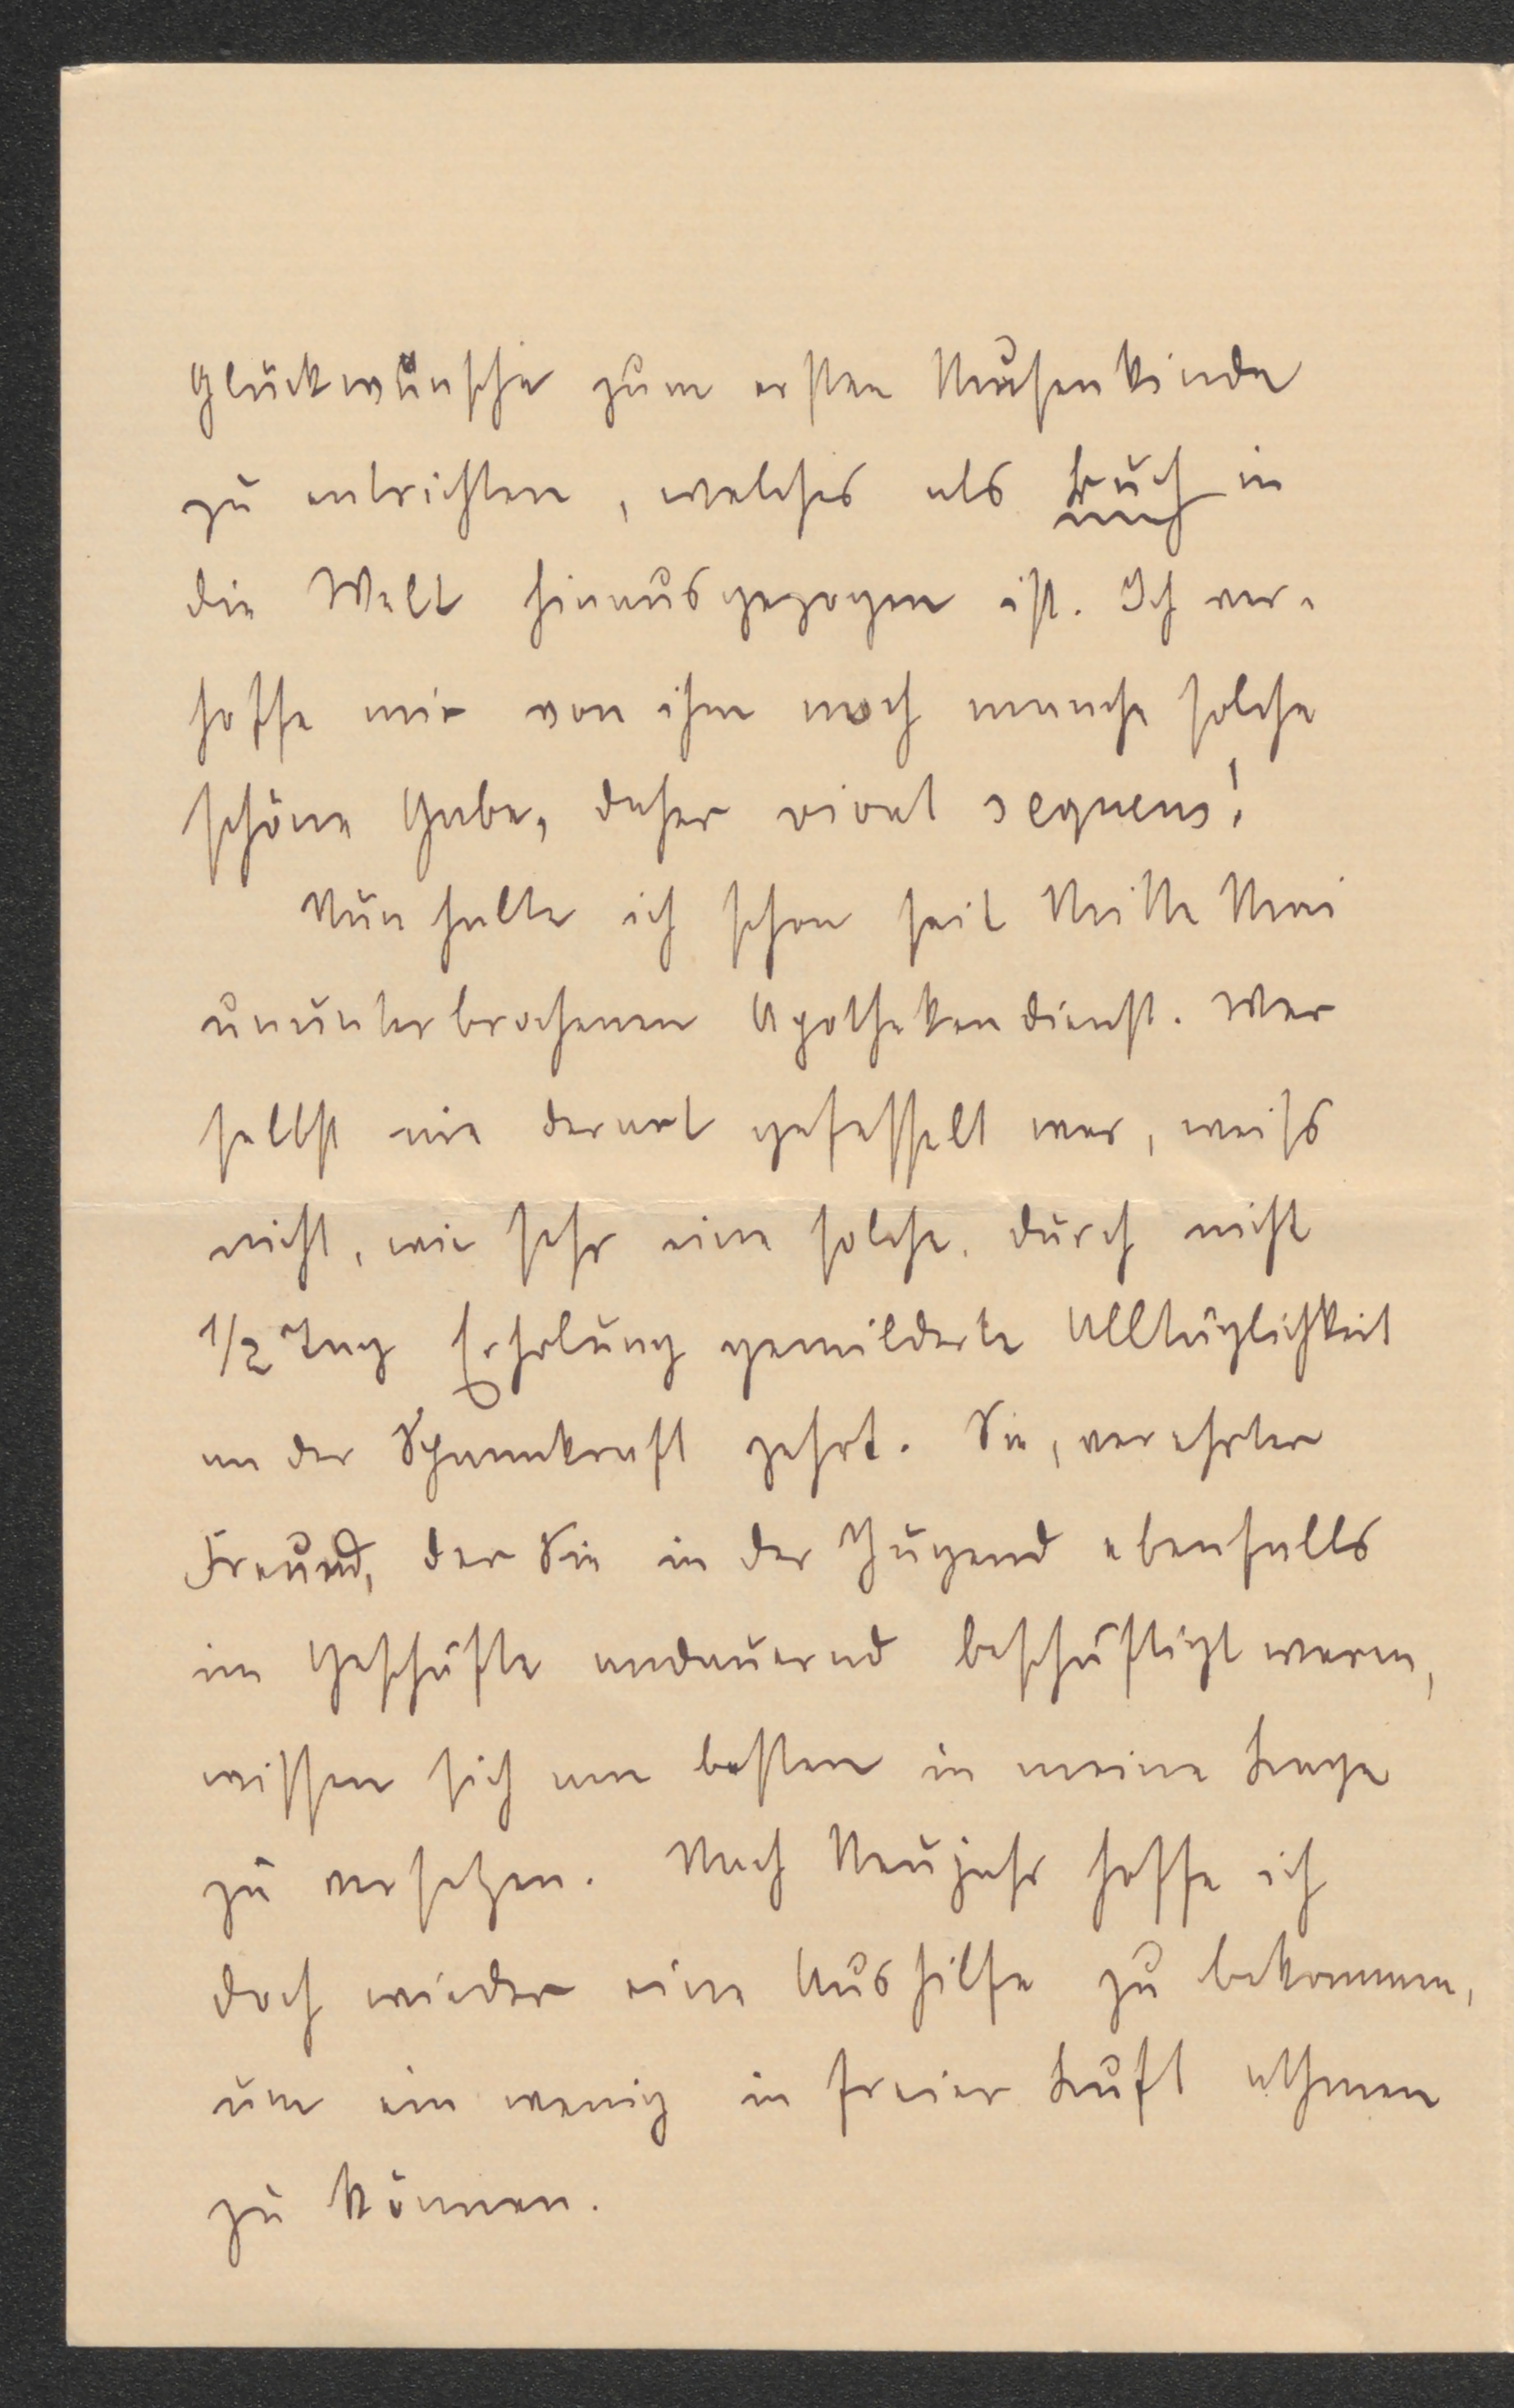 Glückwünsche zum ersten Musenkinde
zu entrichten, welches als Buch in
die Welt hinausgezogen ist. Ich ver-
hoffe mir von ihm noch manche solche
schöne Gabe, daher vivat sequens!
Nun halte ich schon seit Mitte Mai
ununterbrochenen Apothekendienst. Wer
selbst nie derart gefesselt war, weiss
nicht, wie sehr eine solche, durch nicht
1/2 Tag Erholung gemilderte Alltäglichkeit
an der Spannkraft zehrt. Sie, verehrter
Freund, der Sie in der Jugend ebenfalls
im Geschäfte andauernd beschäftigt waren,
wissen sich am besten in meine Lage
zu versetzen. Nach Neujahr hoffe ich
doch wieder eine Aushilfe zu bekommen,
um ein wenig in freier Luft athmen
zu können.